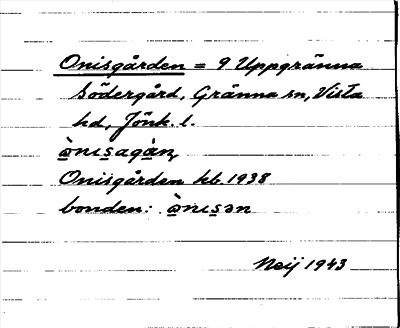 Onisgården = 9 Uppgränna
Södergård, Gränna sn, Vista
hd, Jönk. l.
ònisagàn,
Onisgården kb. 1938
bonden: ònisən
Neij 1943